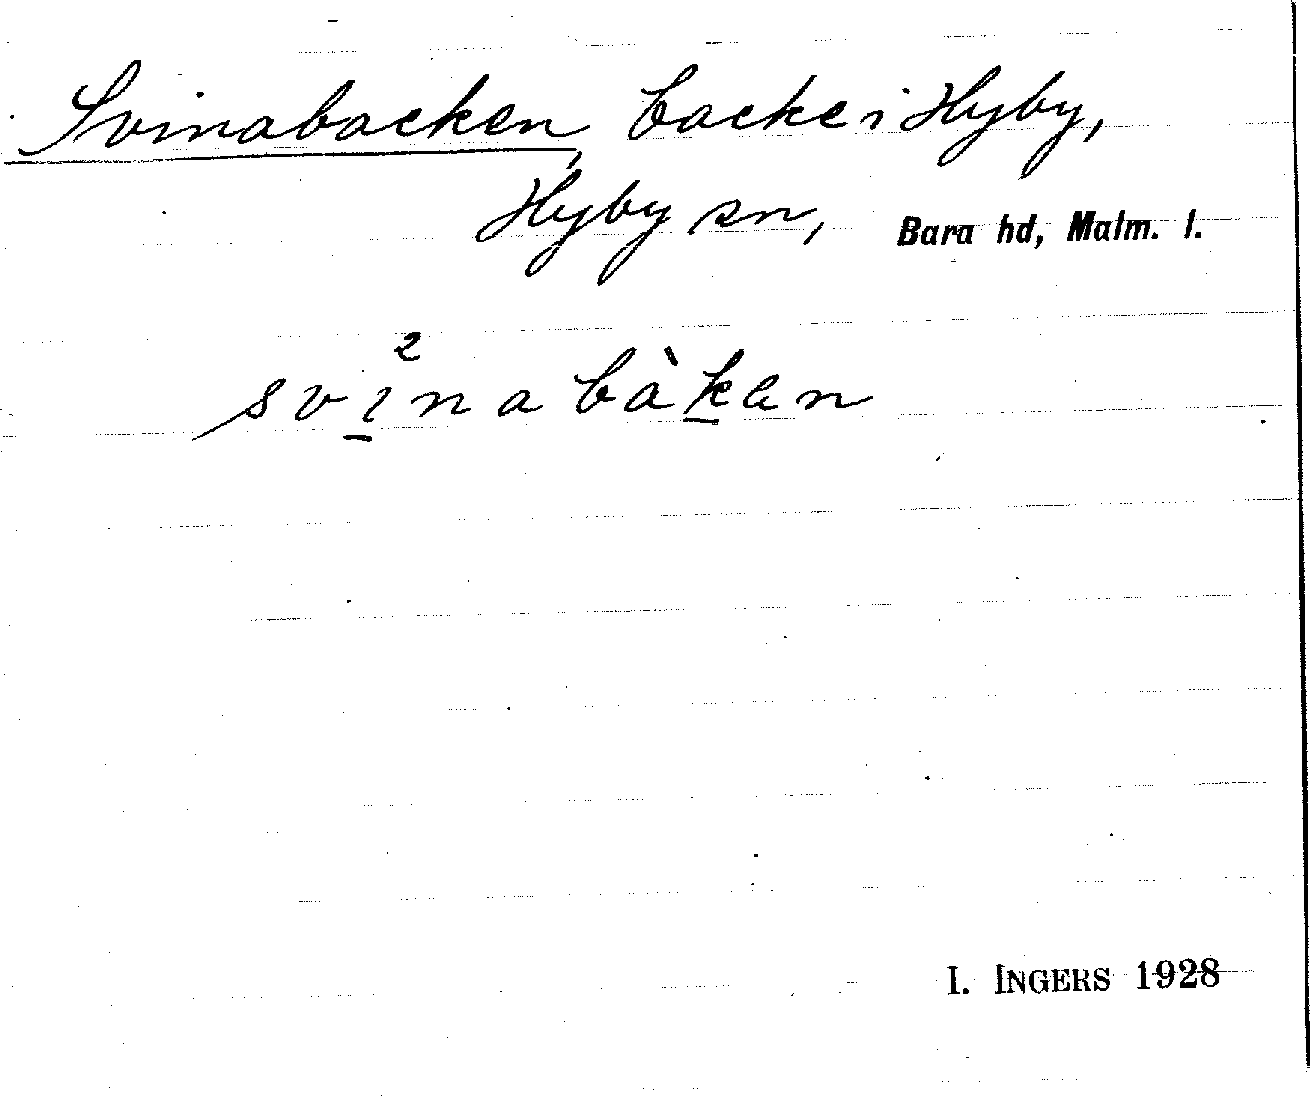 Svinabacken, backe i Hyby,
Hyby sn, Bara hd, Malm. l.
svi̱²nabàḵen
I. INGERS 1928